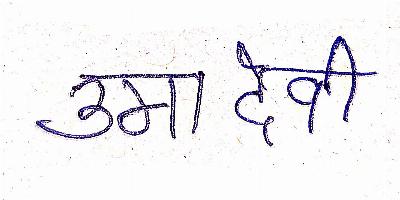 उमा देवी